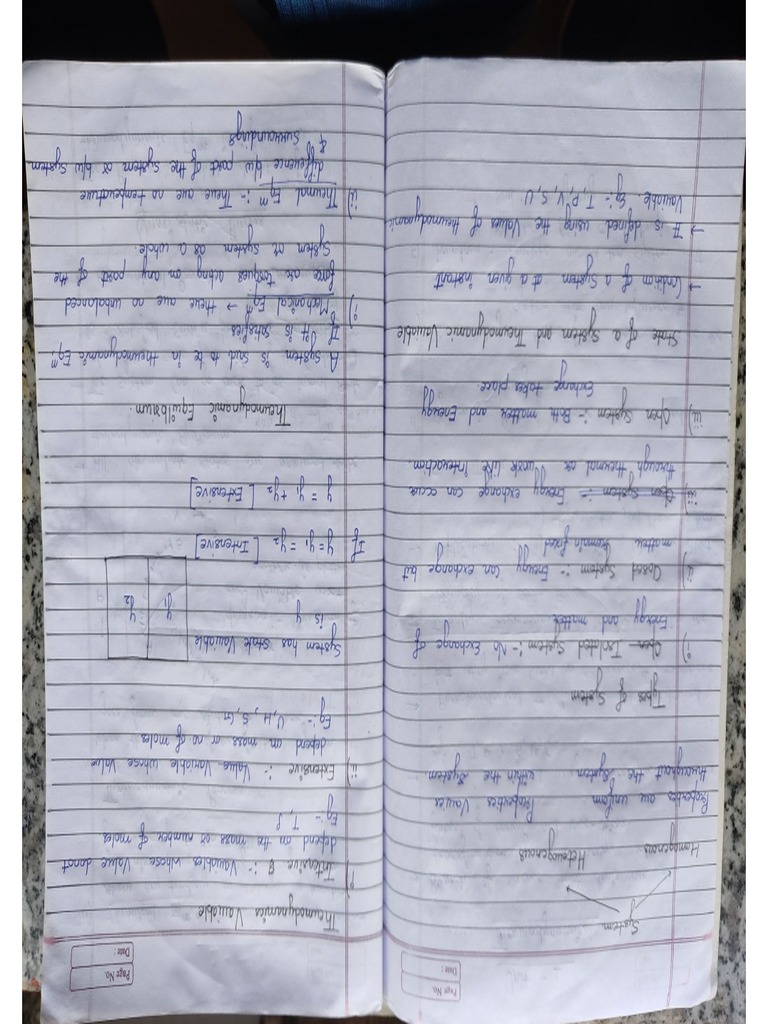 Page No.
Date :
System
Homogenous Heterogenous
Properties are uniform Properties Varies
throughout the System within the System
Types of System
i) Open Isolated System :- No Exchange of
Energy and matter
ii) Closed System :- Energy Can exchange but
matter remain fixed
iii) Open System :- Energy exchange can occur
through thermal or work like Interaction
iii) Open System :- Both matter and Energy
Exchange takes place.
State of a System and Thermodynamic Variable
→ Condition of a System at a given instant
→ It is defined using the Values of thermodynamic
Variable. Eg :- T, P, V, S, U
Page No.
Date :
Thermodynamics Variable
i) Intensive :- Variables whose Value donot
depend on the mass or number of moles
Eg :- T, P
ii) Extensive :- Value Variable whose Value
depend on mass or no of moles
Eg :- U, H, S, G
System has state Variable
is y
y1 y2
If y = y1 = y2 [Intensive]
y = y1 + y2 [Extensive]
Thermodynamic Equilibrium.
A System is said to be in thermodynamic Eqm.
If it is satisfies
i) Mechanical Eqm → there are no unbalanced
force or torques acting on any part of the
System or system as a whole.
ii) Thermal Eqm :- There are no temperature
difference b/w part of the system or b/w system
& surroundings